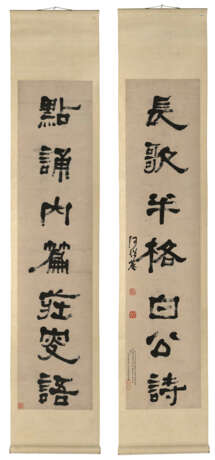 長歌半格白公詩
何紹基
點誦內篇莊叟語